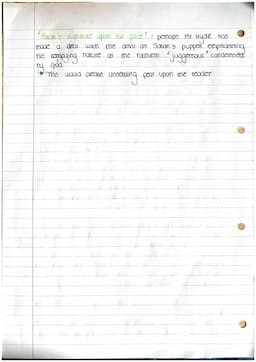 "Satan's signature upon his face" - perhaps Mr Hyde has
made a deal with the devil as Satan's puppet emphasising
his terrifying nature as the ruthless "juggernaut" condemned
by God.
This would create unnerving fear upon the reader